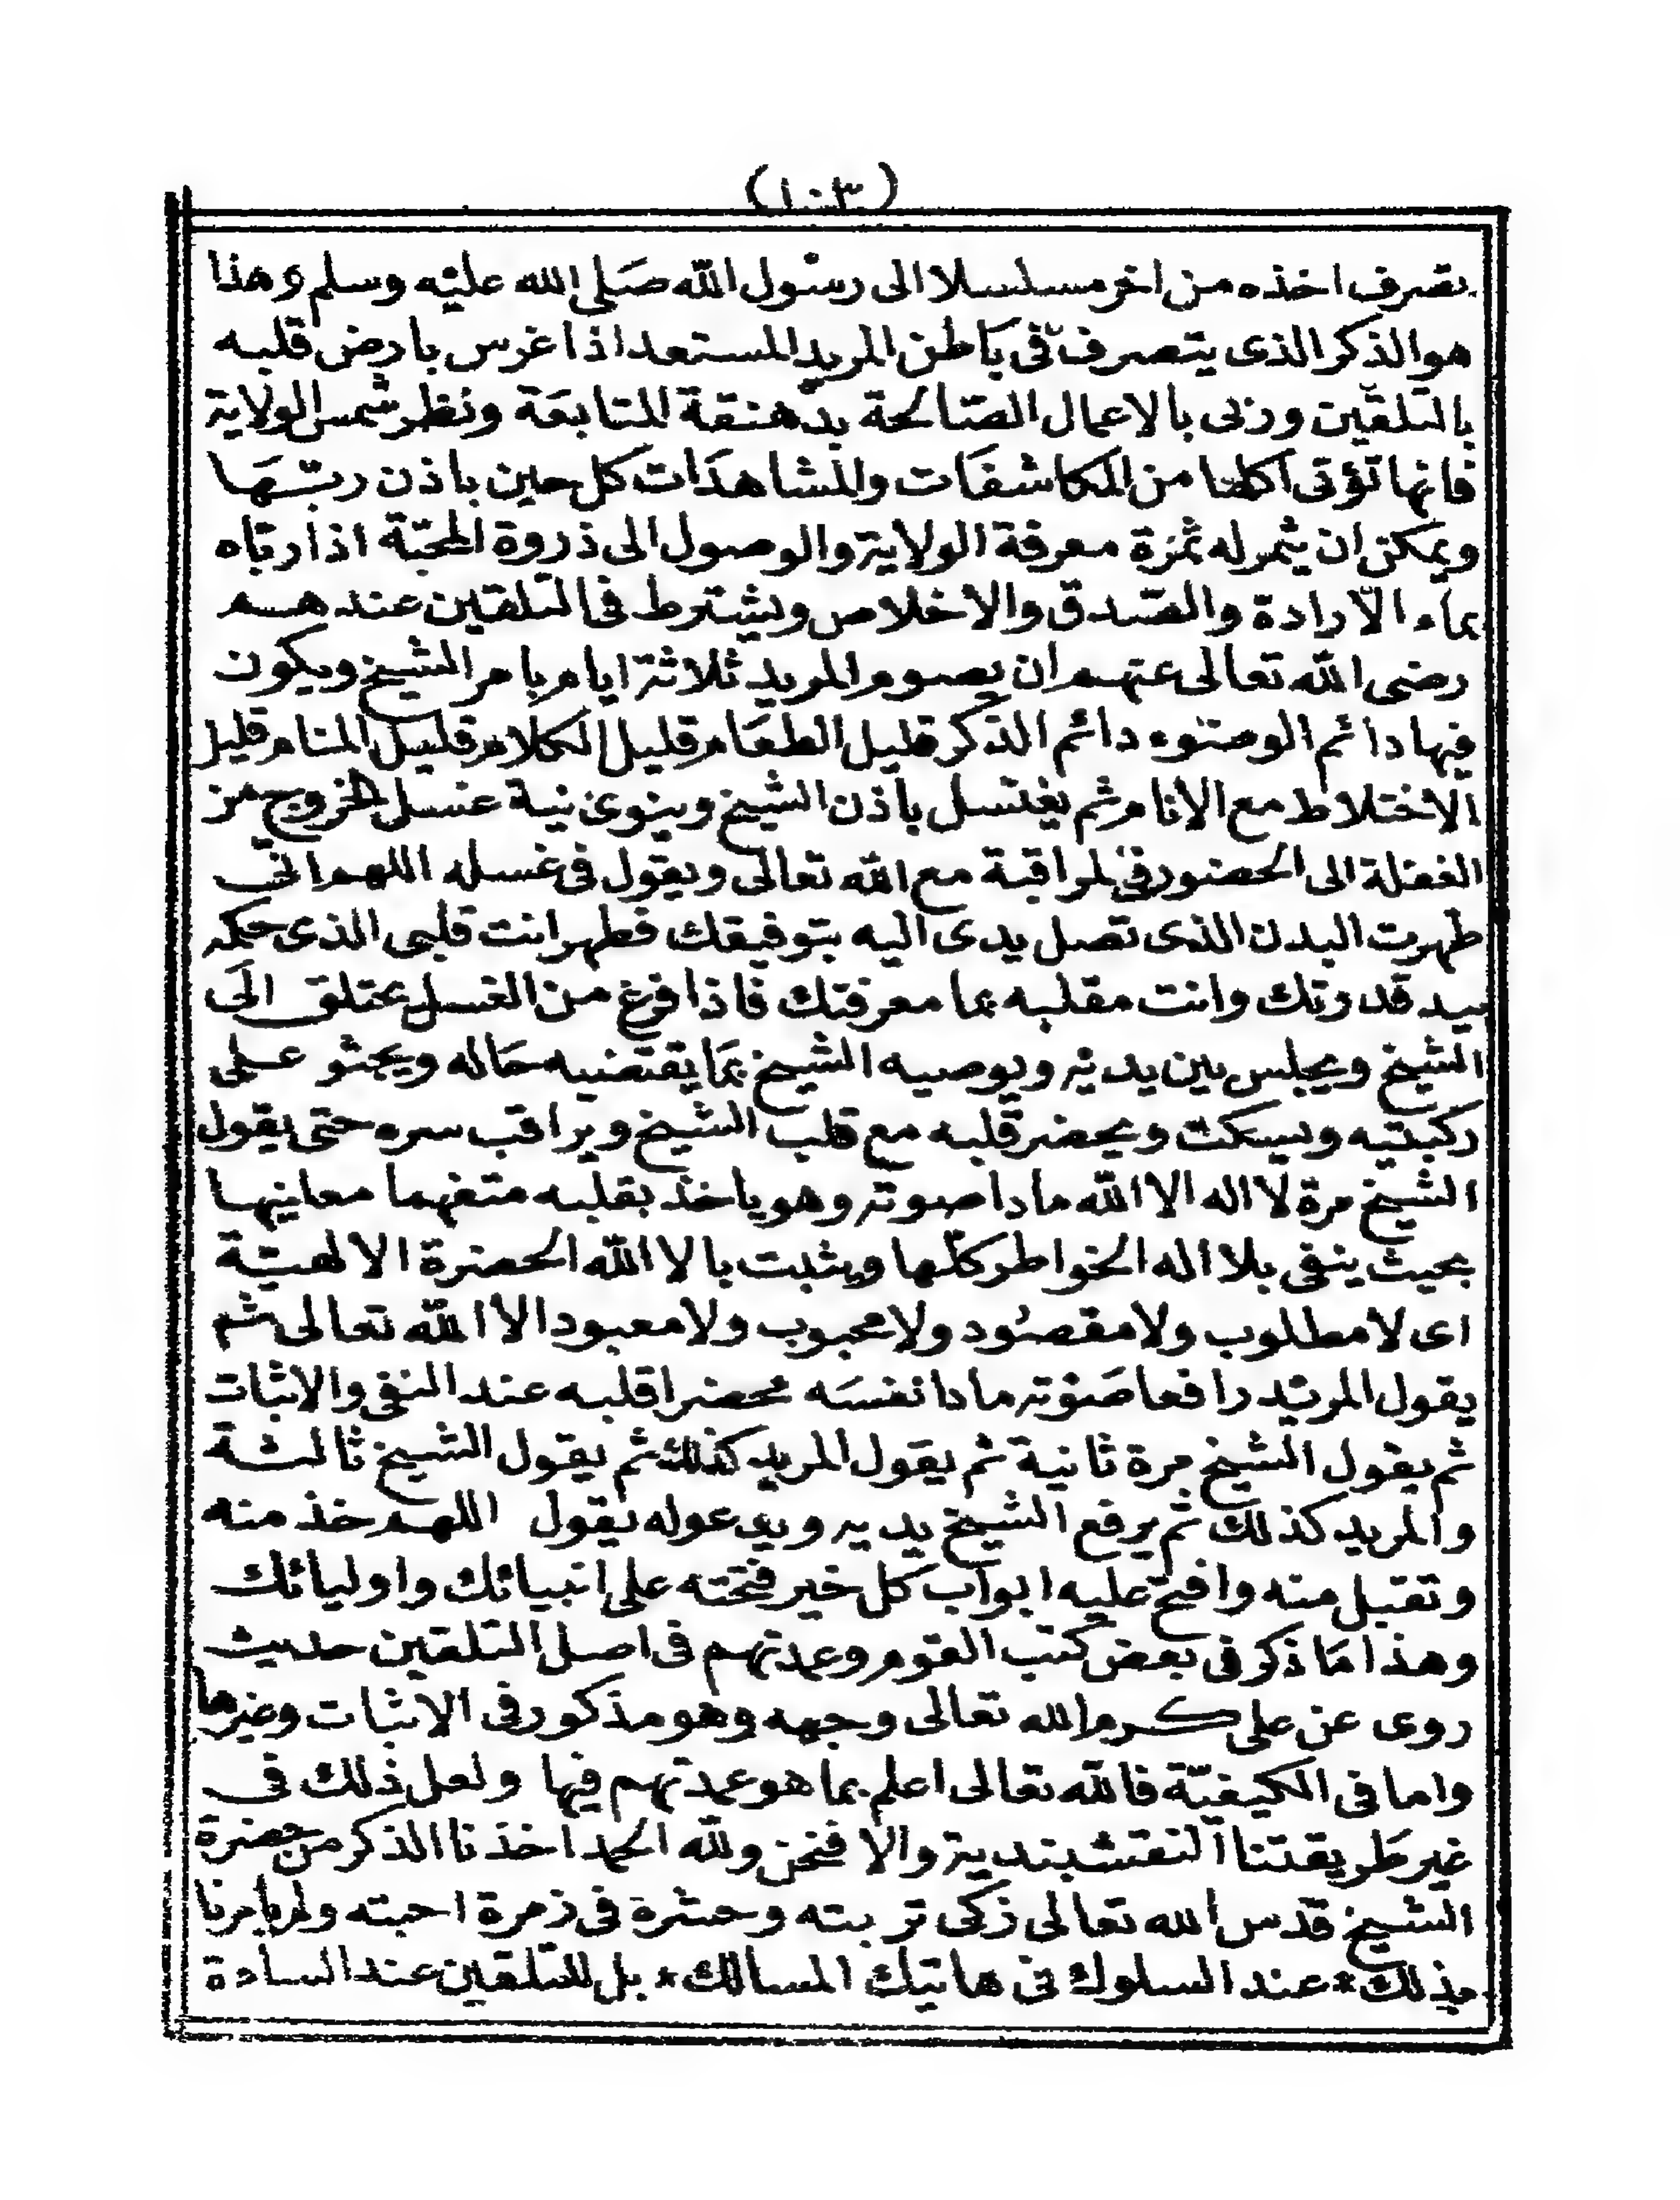 (١٠٣)
بتصرف اخذه من اخر مسلسلا الى رسول الله صلى الله عليه وسلم وهذا
هو الذكر الذى يتصرف فى باطن المريد المستعد اذا غرس بارض قلبه
بالتلقين وربى بالاعمال الصالحة بدهنقة المتابعة ونظر شمس الولاية
فانها تؤتى اكلها من المكاشفات والمشاهدات كل حين باذن ربها
ويمكن ان يثمر له ثمرة معرفة الولاية والوصول الى ذروة المحبة اذا رباه
بماء الارادة والصدق والاخلاص ويشترط فى التلقين عندهم
رضى الله تعالى عنهم ان يصوم المريد ثلاثة ايام بامر الشيخ ويكون
فيها دائم الوضوء دائم الذكر قليل الطعام قليل الكلام قليل المنام قليل
الاختلاط مع الانام ثم يغتسل باذن الشيخ وينوى نية غسل الخروج من
الغفلة الى الحضور فى المراقبة مع الله تعالى ويقول فى غسله اللهم انى
طهرت البدن الذى تصل يدى اليه بتوفيقك فطهر انت قلبى الذى حكمه
بيد قدرتك وانت مقلبه بما معرفتك فاذا فرغ من الغسل الى
الشيخ ويجلس بين يديه ويوصيه الشيخ بما يقتضيه حاله ويجثو على
ركبتيه ويسكت ويحضر قلبه مع قلب الشيخ ويراقب سره حتى يقول
الشيخ مرة لا اله الا الله مادا صوته وهو ياخذ بقلبه متفهما معانيها
بحيث ينفى بلا اله الخواطر كلها ويثبت بالا الله الحضرة الالهية
اى لا مطلوب ولا مقصود ولا محبوب ولا معبود الا الله تعالى ثم
يقول المريد رافعا صوته مادا نفسه محضرا قلبه عند النفى والاثبات
ثم يقول الشيخ مرة ثانية ثم يقول المريد كذلك ثم يقول الشيخ ثالثة
والمريد كذلك ثم يرفع الشيخ يديه ويدعوله يقول اللهم خذ منه
وتقبل منه وافتح عليه ابواب كل خير فتحته على انبيائك واوليائك
وهذا ما ذكر فى بعض كتب القوم وعمدتهم فى اصل التلقين حديث
روى عن على كرم الله تعالى وجهه وهو مذكور فى الاثبات وغيرها
واما فى الكيفية فالله تعالى اعلم بما هو عمدتهم فيها ولعل ذلك فى
غير طريقتنا النقشبندية والا فنحن ولله الحمد اخذنا الذكر من حضرة
الشيخ قدس الله تعالى زكى تربته وحشره فى زمرة احبته ولم يامرنا
بذلك * عند السلوك فى هاتيك المسالك * بل للتلقين عند السادة